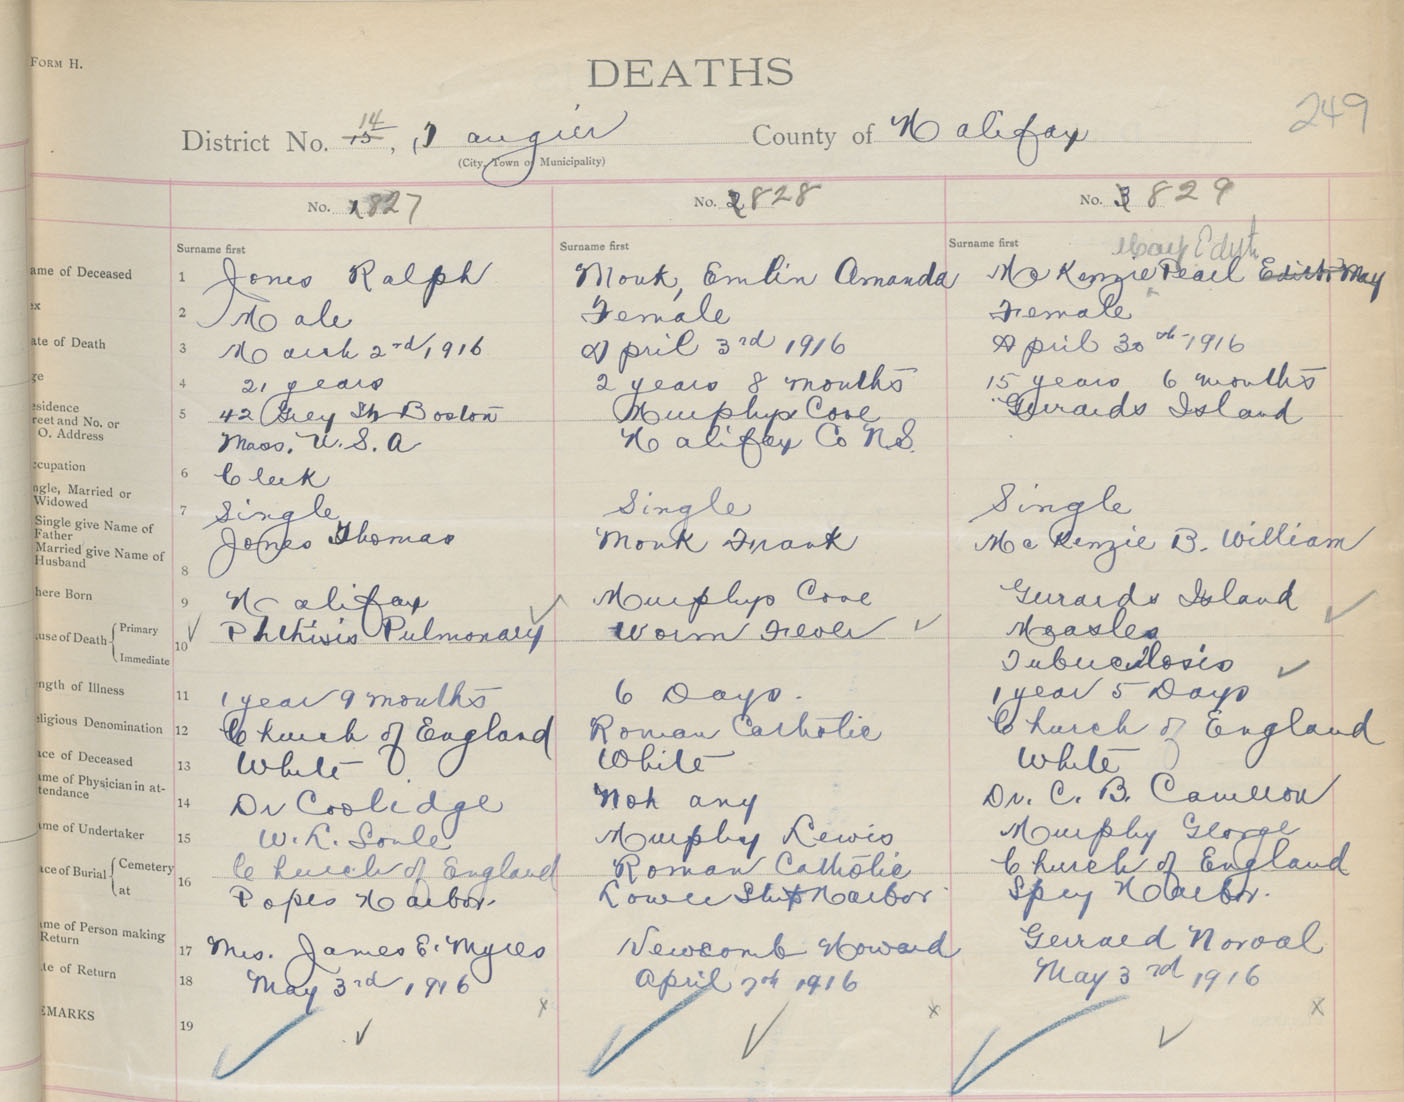 FORM H.
DEATHS
249
District No. 14 15, Tangier County of Halifax
(City, Town or Municipality)
No. 1 827 No. 2 828 No. 3 829
Surname first Surname first Surname first
May Edyth
ame of Deceased 1 Jones Ralph Monk, Emlin Amanda McKenzie Pearl Edith May
ex 2 Male Female Female
ate of Death 3 March 2nd, 1916 April 3rd 1916 April 30th 1916
ge 4 21 years 2 years 8 months 15 years 6 months
esidence 5 42 Grey St. Boston Murphys Cove Gerrards Island
reet and No. or
O. Address Mass. U.S.A Halifax Co N.S.
ccupation 6 Clerk
ngle, Married or
Widowed 7 Single Single Single
Single give Name of
Father Jones Thomas Monk Frank McKenzie B. William
Married give Name of
Husband 8
here Born 9 Halifax Murphys Cove Gerrards Island
use of Death Primary 10 Phthisis Pulmonary Worm Fever Measles
Immediate Tuberculosis
ngth of Illness 11 1 year 9 months 6 Days. 1 year 5 Days
eligious Denomination 12 Church of England Roman Catholic Church of England
ace of Deceased 13 White White White
ame of Physician in at-
tendance 14 Dr Coolidge Not any Dr. C. B. Cameron
ame of Undertaker 15 W. L. Soule Murphy Lewis Murphy George
ace of Burial Cemetery 16 Church of England Roman Catholic Church of England
at Popes Harbor. Lower Ship Harbor. Spry Harbor.
ame of Person making
Return 17 Mrs. James E. Myres Newcomb Howard Gerrard Norval
te of Return 18 May 3rd, 1916 April 7th 1916 May 3rd 1916
EMARKS 19 x x x